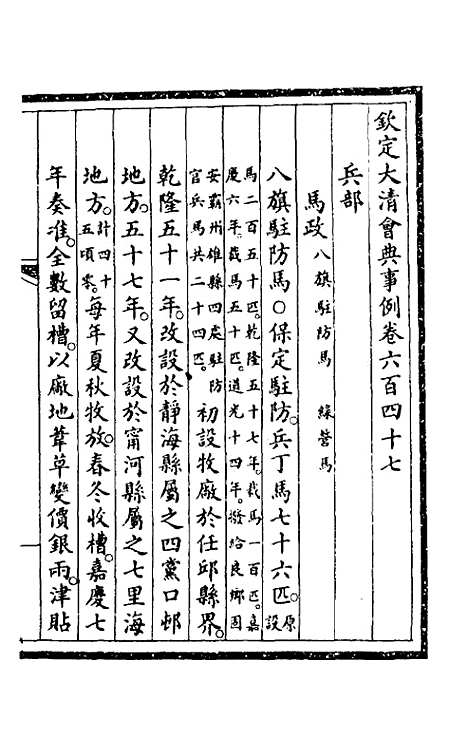 欽定大清會典事例卷六百四十七
兵部
馬政 八旗駐防馬 綠營馬
八旗駐防馬〇保定駐防。兵丁馬七十六匹。原設
馬二百五十匹。乾隆五十七年。裁馬一百匹。嘉
慶六年。裁馬五十匹。道光十四年。撥給良鄉固
安霸州雄縣四處駐防
官兵馬共二十四匹。 初設牧廠於任邱縣界。
乾隆五十一年。改設於靜海縣屬之四黨口邨
地方。五十七年。又改設於甯河縣屬之七里海
地方。計四十五頃零。每年夏秋牧放。春冬收槽。嘉慶七
年奏准。全數留槽。以廠地葦草變價銀兩。津貼